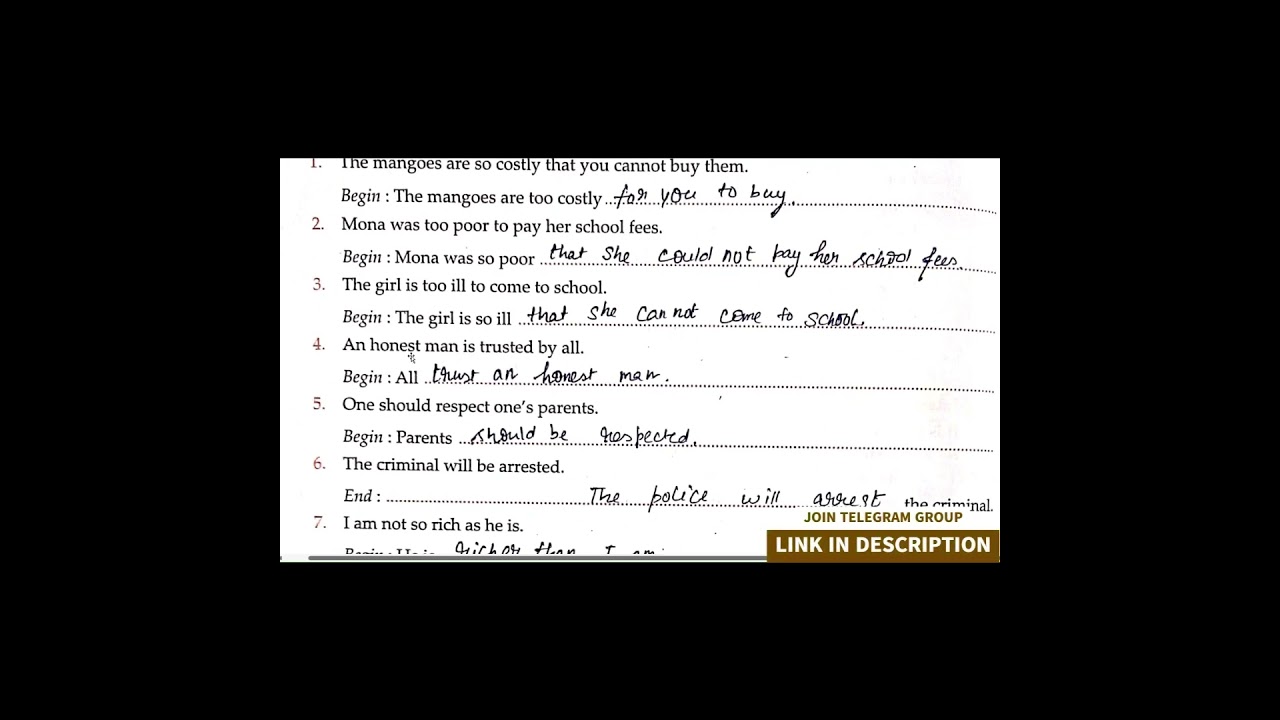 1. The mangoes are so costly that you cannot buy them.
Begin : The mangoes are too costly for you to buy.
2. Mona was too poor to pay her school fees.
Begin : Mona was so poor that she could not pay her school fees.
3. The girl is too ill to come to school.
Begin : The girl is so ill that she cannot come to school.
4. An honest man is trusted by all.
Begin : All trust an honest man.
5. One should respect one's parents.
Begin : Parents should be respected.
6. The criminal will be arrested.
End : The police will arrest the criminal.
JOIN TELEGRAM GROUP
7. I am not so rich as he is.
LINK IN DESCRIPTION
Begin : He is richer than I am.